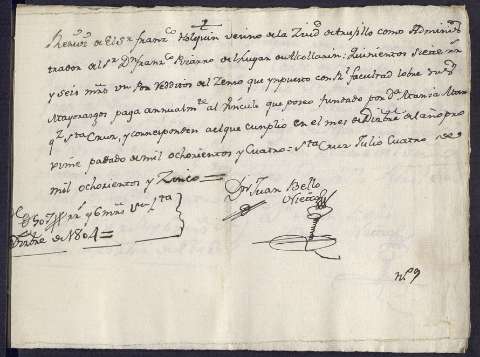 Reciví de el Sr. Franz.co Holguin vecino de la Ziud. de truxillo como Adminis
trador de el Sr. Dn. Franz.co Pizarro de el lugar de Alcollarin: Quinientos Siete rr.
y seis mrs. vn. por Redditos del Zenso que ynpuesto con Rl. facultad sobre sus
Mayorazgos paga annualm.te al Vinculo que poseo fundado por Da.
de Sta. Cruz, y corresponden a el que cumplio en el mes de Dizbre. del año pro
ximo pasado de mil ochozientos y Cuatro = Sta. Cruz Julio Cuatro de
mil ochozientos y Zinco =
Dn. Juan Bello
507 rr. y 6 mrs. vn.
Dizbre. de 1804 =
n.o 9